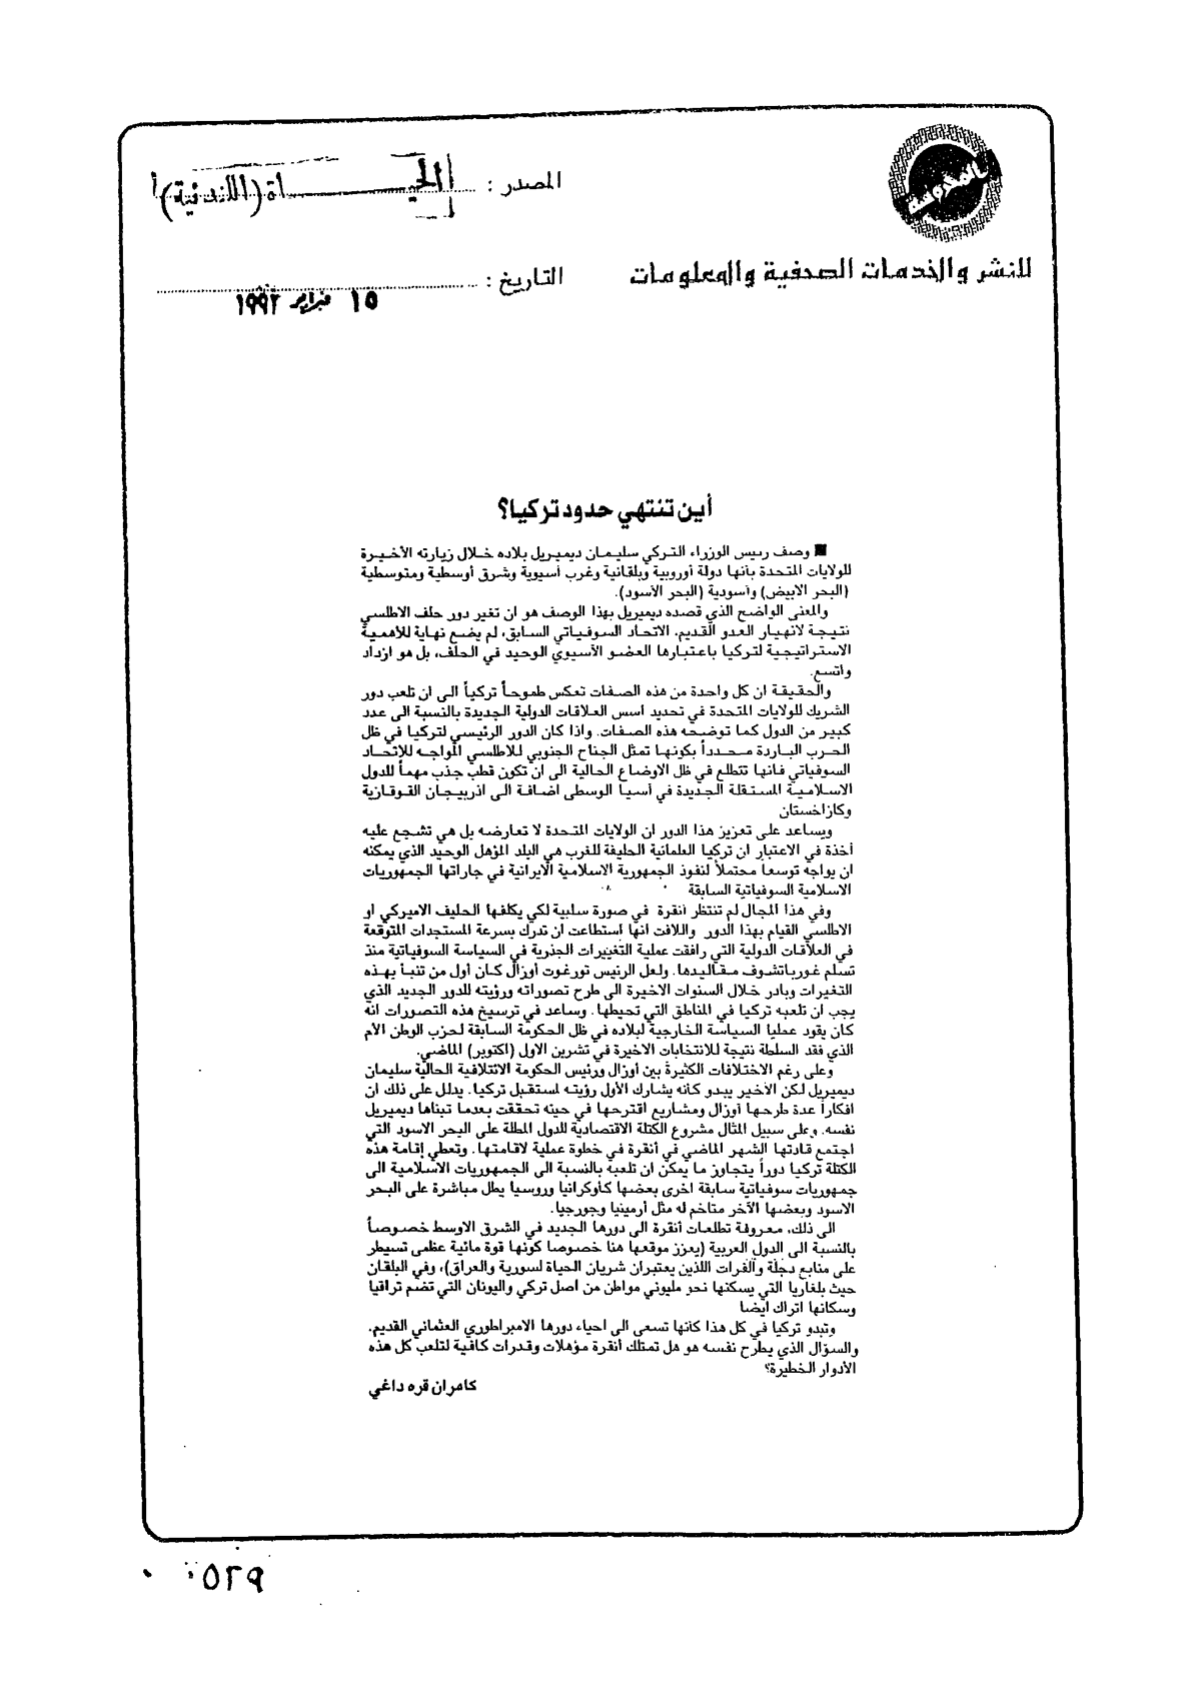 المصدر : الحيـــــاة (اللندنية)
للنشر والخدمات الصحفية والمعلومات
التاريخ : ١٥ فبراير ١٩٩٢
أين تنتهي حدود تركيا؟
■ وصف رئيس الوزراء التركي سليمان ديميريل بلاده خلال زيارته الأخيرة
للولايات المتحدة بأنها دولة أوروبية وبلقانية وغرب آسيوية وشرق أوسطية ومتوسطية
(البحر الابيض) وأسودية (البحر الأسود).
والمعنى الواضح الذي قصده ديميريل بهذا الوصف هو ان تغير دور حلف الاطلسي
نتيجة لانهيار العدو القديم، الاتحاد السوفياتي السابق، لم يضع نهاية للأهمية
الاستراتيجية لتركيا باعتبارها العضو الآسيوي الوحيد في الحلف، بل هو ازداد
واتسع.
والحقيقة ان كل واحدة من هذه الصفات تعكس طموحاً تركياً الى ان تلعب دور
الشريك للولايات المتحدة في تحديد اسس العلاقات الدولية الجديدة بالنسبة الى عدد
كبير من الدول كما توضحه هذه الصفات. واذا كان الدور الرئيسي لتركيا في ظل
الحرب الباردة محدداً بكونها تمثل الجناح الجنوبي للاطلسي المواجه للاتحاد
السوفياتي فانها تتطلع في ظل الاوضاع الحالية الى ان تكون قطب جذب مهماً للدول
الاسلامية المستقلة الجديدة في آسيا الوسطى اضافة الى اذربيجان القوقازية
وكازاخستان
ويساعد على تعزيز هذا الدور ان الولايات المتحدة لا تعارضه بل هي تشجع عليه
آخذة في الاعتبار ان تركيا العلمانية الحليفة للغرب هي البلد المؤهل الوحيد الذي يمكنه
ان يواجه توسعاً محتملاً لنفوذ الجمهورية الاسلامية الايرانية في جاراتها الجمهوريات
الاسلامية السوفياتية السابقة
وفي هذا المجال لم تنتظر أنقرة في صورة سلبية لكي يكلفها الحليف الاميركي او
الاطلسي القيام بهذا الدور واللافت انها استطاعت ان تدرك بسرعة المستجدات المتوقعة
في العلاقات الدولية التي رافقت عملية التغييرات الجذرية في السياسة السوفياتية منذ
تسلم غورباتشوف مقاليدها. ولعل الرئيس تورغوت أوزال كان أول من تنبأ بهذه
التغيرات وبادر خلال السنوات الاخيرة الى طرح تصوراته ورؤيته للدور الجديد الذي
يجب ان تلعبه تركيا في المناطق التي تحيطها. وساعد في ترسيخ هذه التصورات انه
كان يقود عمليا السياسة الخارجية لبلاده في ظل الحكومة السابقة لحزب الوطن الأم
الذي فقد السلطة نتيجة للانتخابات الاخيرة في تشرين الاول (اكتوبر) الماضي.
وعلى رغم الاختلافات الكثيرة بين أوزال ورئيس الحكومة الائتلافية الحالية سليمان
ديميريل لكن الأخير يبدو كانه يشارك الأول رؤيته لمستقبل تركيا. يدلل على ذلك ان
افكاراً عدة طرحها أوزال ومشاريع اقترحها في حينه تحققت بعدما تبناها ديميريل
نفسه. وعلى سبيل المثال مشروع الكتلة الاقتصادية للدول المطلة على البحر الاسود التي
اجتمع قادتها الشهر الماضي في أنقرة في خطوة عملية لاقامتها. وتعطي إقامة هذه
الكتلة تركيا دوراً يتجاوز ما يمكن ان تلعبه بالنسبة الى الجمهوريات الاسلامية الى
جمهوريات سوفياتية سابقة اخرى بعضها كأوكرانيا وروسيا يطل مباشرة على البحر
الاسود وبعضها الآخر متاخم له مثل أرمينيا وجورجيا.
الى ذلك، معروفة تطلعات أنقرة الى دورها الجديد في الشرق الاوسط خصوصاً
بالنسبة الى الدول العربية (يعزز موقعها هنا خصوصا كونها قوة مائية عظمى تسيطر
على منابع دجلة والفرات اللذين يعتبران شريان الحياة لسورية والعراق)، وفي البلقان
حيث بلغاريا التي يسكنها نحو مليوني مواطن من اصل تركي واليونان التي تضم تراقيا
وسكانها اتراك ايضا
وتبدو تركيا في كل هذا كانها تسعى الى احياء دورها الامبراطوري العثماني القديم.
والسؤال الذي يطرح نفسه هو هل تمتلك أنقرة مؤهلات وقدرات كافية لتلعب كل هذه
الأدوار الخطيرة؟
كامران قره داغي
٥٢٩